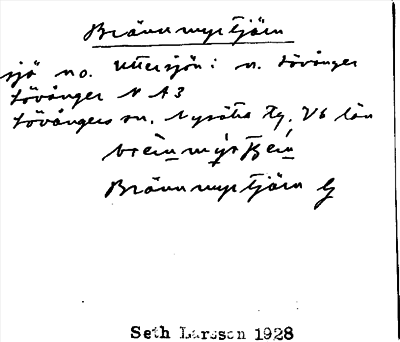 Brännmyrtjärn
sjö no. Uttersjön: n. Lövånger
Lövånger N A3
Lövångers sn. Nysätra tg. Vb län
Brännmyrtjärn G
Seth Larsson 1928